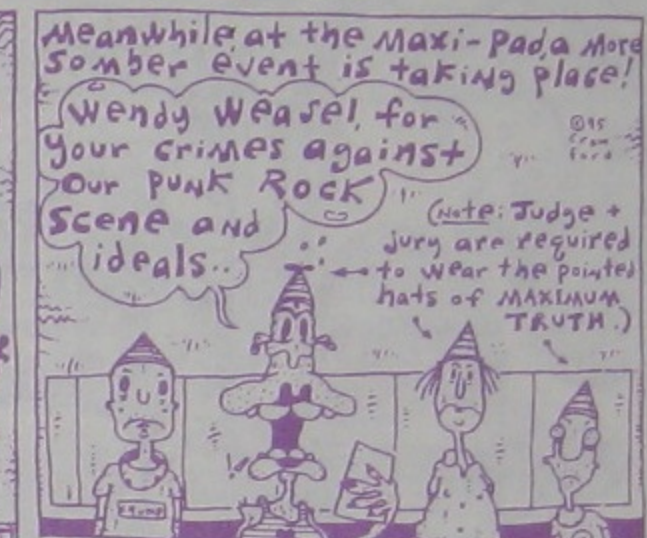 Meanwhile, at the Maxi-Pad, a More
Somber event is taking place!
Wendy Weasel, for
your crimes against
Our PUNK ROCK
Scene and
ideals..
©95
Craw
ford
(Note: Judge +
jury are required
to wear the pointed
hats of MAXIMUM
TRUTH.)
!